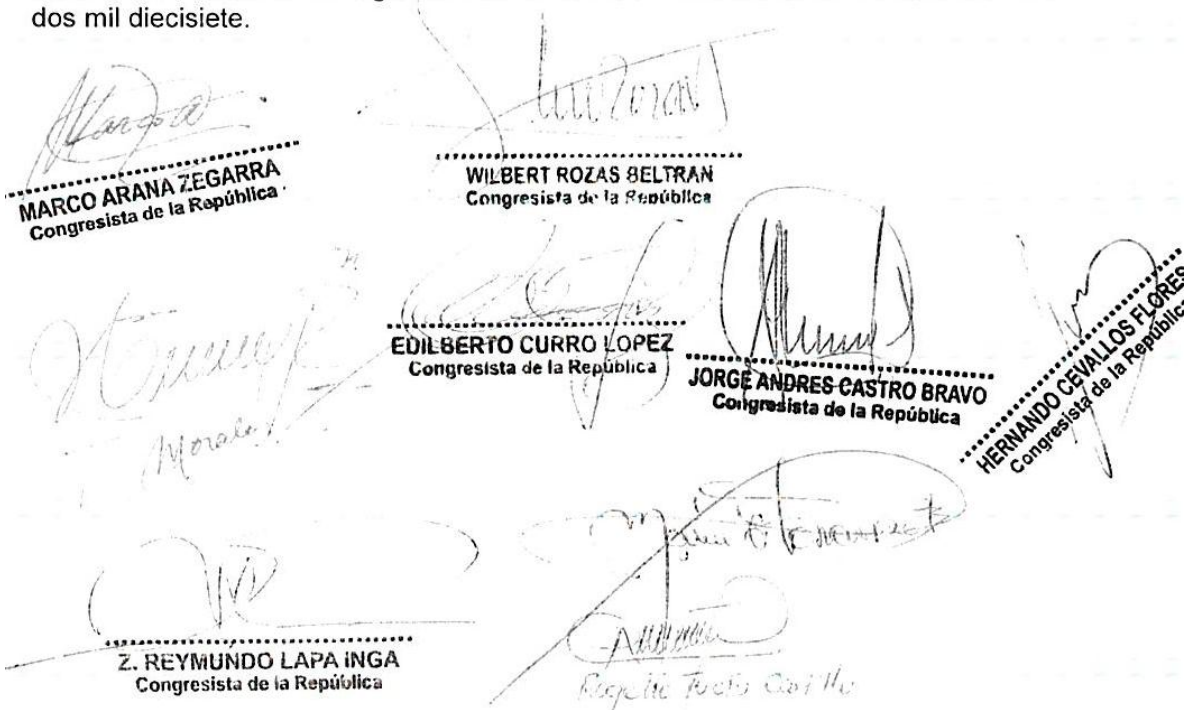 dos mil diecisiete.
MARCO ARANA ZEGARRA
Congresista de la República
WILBERT ROZAS BELTRAN
Congresista de la República
EDILBERTO CURRO LOPEZ
Congresista de la República
JORGE ANDRES CASTRO BRAVO
Congresista de la República
HERNANDO CEVALLOS FLORES
Congresista de la República
Morales
Z. REYMUNDO LAPA INGA
Congresista de la República
Rogelio Tucto Castillo